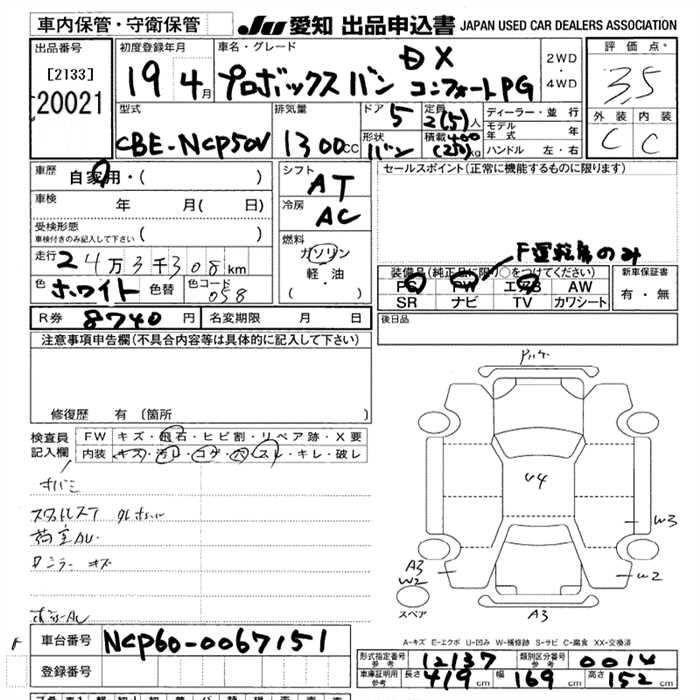 車内保管・守衛保管
JU 愛知 出品申込書 JAPAN USED CAR DEALERS ASSOCIATION
出品番号
[2133]
20021
初度登録年月
19年 4月
車名・グレード
DX
プロボックス バン コンフォートPG
2WD
・
4WD
評価点
3.5
外装 内装
C C
型式
CBE-NCP50V
排気量
1300cc
ドア 5
形状 バン
定員 2(5)人
積載 400(250)kg
ディーラー・並行
モデル年式 年
ハンドル 左・右
車歴
自家用・( )
車検 年 月( 日)
受検形態
車検付きのみ記入して下さい ( )
走行
24万3千308km
色 ホワイト 色替 色コード 058
シフト
AT
冷房
AC
燃料
ガソリン
軽・油
( ・ )
セールスポイント(正常に機能するものに限ります)
F運転席のみ
装備品(純正品に限り○をつけてください)
PS PW エアB AW
SR ナビ TV カワシート
新車保証書
有・無
R券 8740円 名変期限 月 日
後日品
注意事項申告欄(不具合内容等は具体的に記入して下さい)
修復歴 有(箇所
検査員
記入欄
FW キズ・飛石・ヒビ割・リペア跡・X要
内装 キズ・汚レ・コゲ・穴・スレ・キレ・破レ
U4
W3
W2
A3
W2
スペア
A3
A-キズ E-エクボ U-凹み W-補修跡 S-サビ C-腐食 XX-交換済
車台番号 NCP60-0067151
登録番号
形式指定番号
参考
12137
類別区分番号
参考
0014
車庫証明用
参考
長さ 419cm 幅 169cm 高さ 152cm